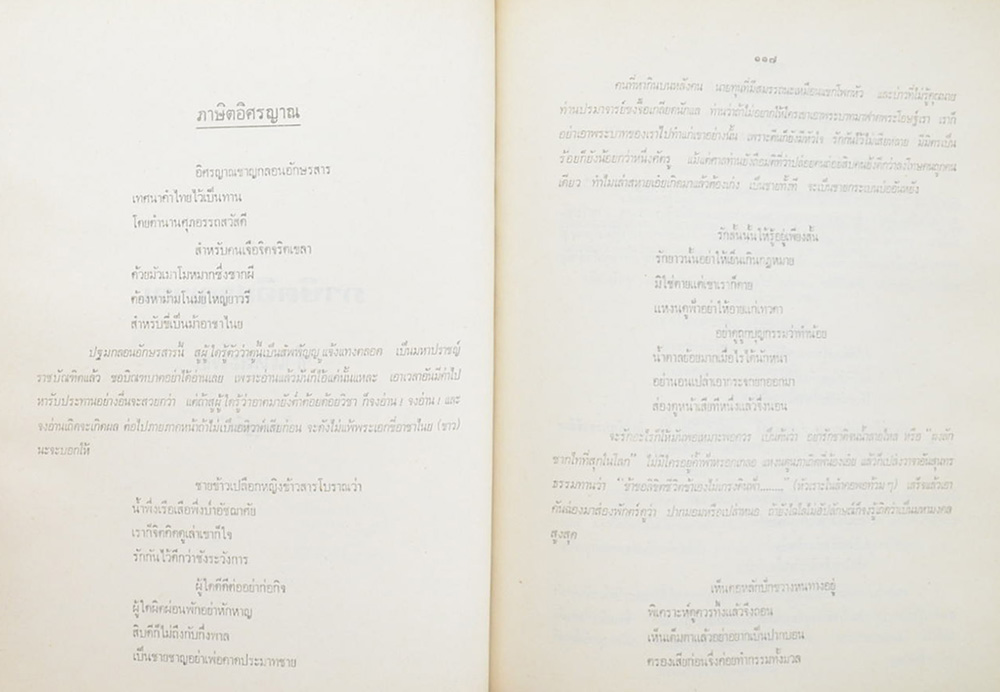 ภาษิตอิศรญาณ
อิศรญาณชาญกลอนอักษรสาร
เทศนาคำไทยไว้เป็นทาน
โดยตำนานศุภอรรถสวัสดี
สำหรับคนเจือจิตจริตเขลา
ด้วยมัวเมาโมหมากซึ่งซากผี
ต้องหาม้ามโนมัยใหญ่ยาวรี
สำหรับขี่เป็นม้าอาชาไนย
ปฐมกลอนอักษรสารนี้ สูผู้ใดรู้ตัวว่าตูนี้เป็นสัพพัญญูแจ้งแทงตลอด เป็นมหาปราชญ์
ราชบัณฑิตแล้ว ขอบิณฑบาตอย่าได้อ่านเลย เพราะอ่านแล้วมันก็ไอ้แค่นั้นแหละ เอาเวลาอันมีค่าไป
หารับประทานอย่างอื่นจะสวยกว่า แต่ถ้าสูผู้ใดรู้ว่าอาตมายังต่ำต้อยด้อยวิชา ก็จงอ่าน! จงอ่าน! และ
จงอ่านเถิดจะเกิดผล ต่อไปภายภาคหน้าถ้าไม่เป็นอสัวคต์เสียก่อน จะดังไม่แพ้พระเอกชื่ออาชาไนย (ขาว)
นะจะบอกให้
ชายข้าวเปลือกหญิงข้าวสารโบราณว่า
น้ำพึ่งเรือเสือพึ่งป่าอัชฌาศัย
เราก็จิตคิดดูเล่าเขาก็ใจ
รักกันไว้ดีกว่าชังระวังการ
ผู้ใดดีดีต่ออย่าก่อกิจ
ผู้ใดผิดผ่อนพักอย่าหักหาญ
สิบดีก็ไม่ถึงกับกึ่งพาล
เป็นชายชาญอย่าเพ่อคาดประมาทชาย
๑๑๗
คนที่หากินบนหลังคน นายทุนที่มีสมรรถนะเหมือนแขกโพกหัว และบ่าวที่ไม่รู้คุณนาย
ท่านปรมาจารย์ขงจื้อเกลียดนักแล ท่านว่าถ้าไม่อยากให้ใครเขาเอาพระบาทมาฟาดพระโอษฐ์เรา เราก็
อย่าเอาพระบาทของเราไปทำแก่เขาอย่างนั้น เพราะดินก็ยังมีหัวใจ รักกันไว้ไม่เสียหลาย มีมิตรเป็น
ร้อยก็ยังน้อยกว่าหนึ่งศัตรู แม้แต่ศาลท่านยังถือมติที่ว่าปล่อยคนร้อยสิบคนยังดีกว่าลงโทษคนถูกคน
เดียว ทำไมเล่าสหายเอ๋ยเกิดมาแล้วต้องเก่ง เป็นชายทั้งที จะเป็นชายกระเบนบ่ออันหยัง
รักสั้นนั้นให้รู้อยู่เพียงสั้น
รักยาวนั้นอย่าให้เยิ่นเกินกฎหมาย
มิใช่ตายแต่เขาเราก็ตาย
แหงนดูฟ้าอย่าให้อายแก่เทวดา
อย่าดูถูกบุญกรรมว่าทำน้อย
น้ำตาลย้อยมากเมื่อไรได้หนักหนา
อย่านอนเปล่าเอากระจกยกออกมา
ส่องดูหน้าเสียทีหนึ่งแล้วจึงนอน
จะรักอะไรก็ให้มันพอเหมาะพอควร
สูงสุด
เห็นตอหลักปักขวางหนทางอยู่
พิเคราะห์ดูควรทึ้งแล้วจึงถอน
เห็นเต็มตาแล้วอย่าอยากเป็นปากบอน
ตรองเสียก่อนจึงค่อยทำกรรมทั้งมวล